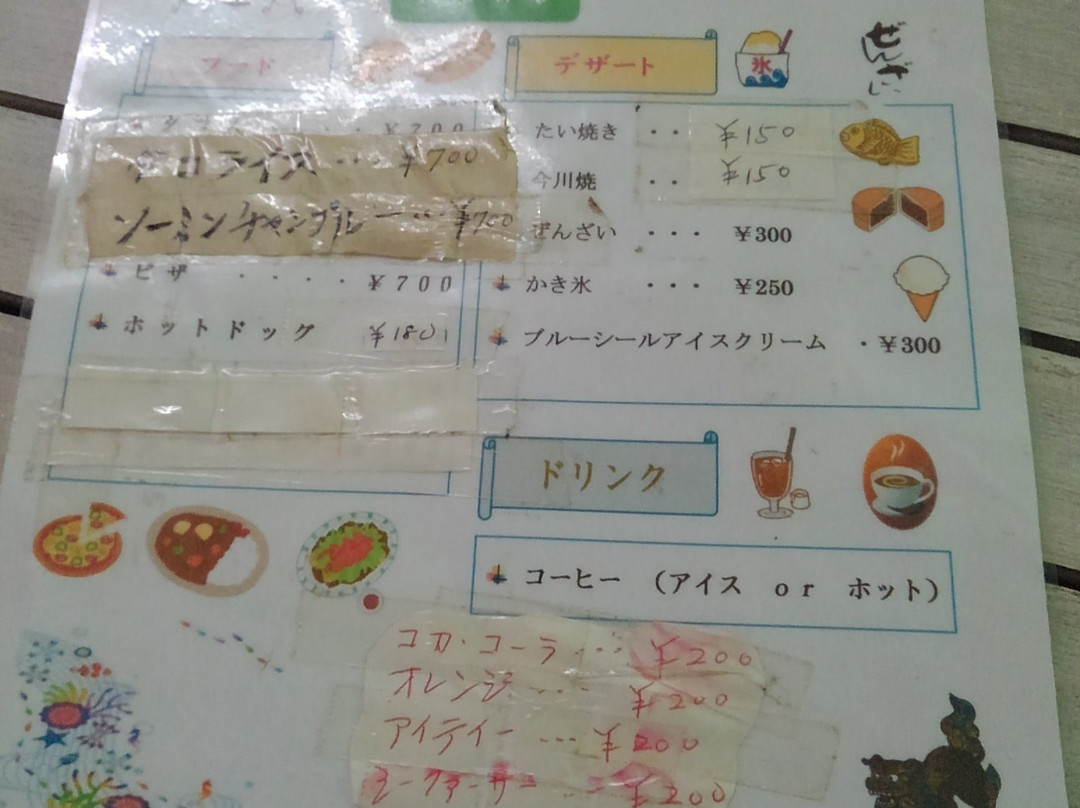 フード
タコライス ... ¥700
ソーミンチャンプルー ... ¥700
ピザ ・・・・ ¥700
ホットドッグ ¥180
デザート
氷
ぜんざい
たい焼き ・・ ¥150
今川焼 ・・ ¥150
ぜんざい ・・・ ¥300
かき氷 ・・・ ¥250
ブルーシールアイスクリーム ・¥300
ドリンク
コーヒー （アイス or ホット）
コカ・コーラ ... ¥200
オレンジ ... ¥200
アイティー ... ¥200
¥200